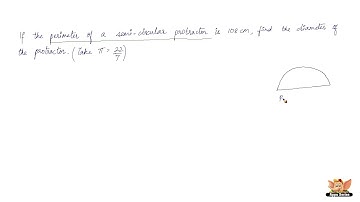 If the perimeter of a semi-circular protractor is 108 cm, find the diameter of
the protractor. (take π = 22/7)
P